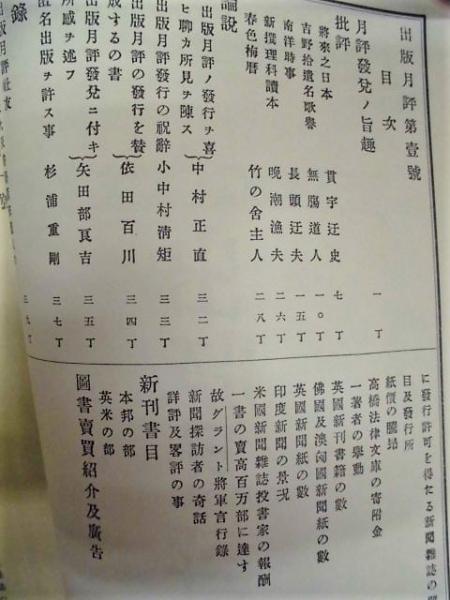 出版月評第壹號
目次
月評發兌ノ旨趣 一丁
批評
將來之日本 貫宇迂史 七丁
吉野拾遺名歌譽 無膓道人 一〇丁
南洋時事 長頭迂夫 一五丁
新撰理科讀本 晩潮漁夫 二六丁
春色梅暦 竹の舍主人 二八丁
論説
出版月評ノ發行ヲ喜
ヒ聊カ所見ヲ陳ス 中村正直 三二丁
出版月評發行の祝辭 小中村清矩 三三丁
出版月評の發行を賛
成するの書 依田百川 三四丁
出版月評發兌ニ付キ
所感ヲ述フ 矢田部良吉 三五丁
匿名出版ヲ許ス事 杉浦重剛 三七丁
錄
に發行許可を得たる新聞雜誌の
目及發行所
紙價の騰昻
高橋法律文庫の寄附金
一著者の擧動
英國新刊書籍の數
佛國及澳匈國新聞紙の數
英國新聞紙の數
印度新聞の景況
米國新聞雜誌投書家の報酬
一書の賣高百万部に達す
故グラント將軍言行錄
新聞探訪者の奇話
詳評及畧評の事
新刊書目
本邦の部
英米の部
圖書賣買紹介及廣告